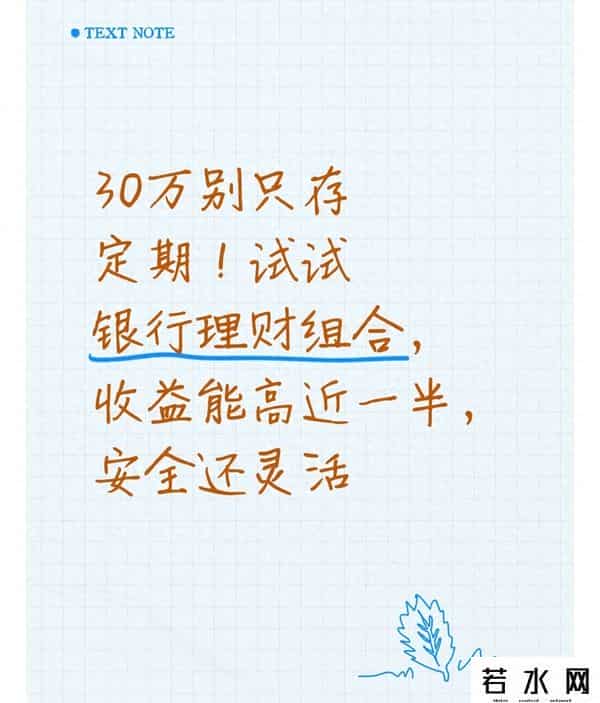 TEXT NOTE
30万别只存
定期！试试
银行理财组合，
收益能高近一半，
安全还灵活
若水网